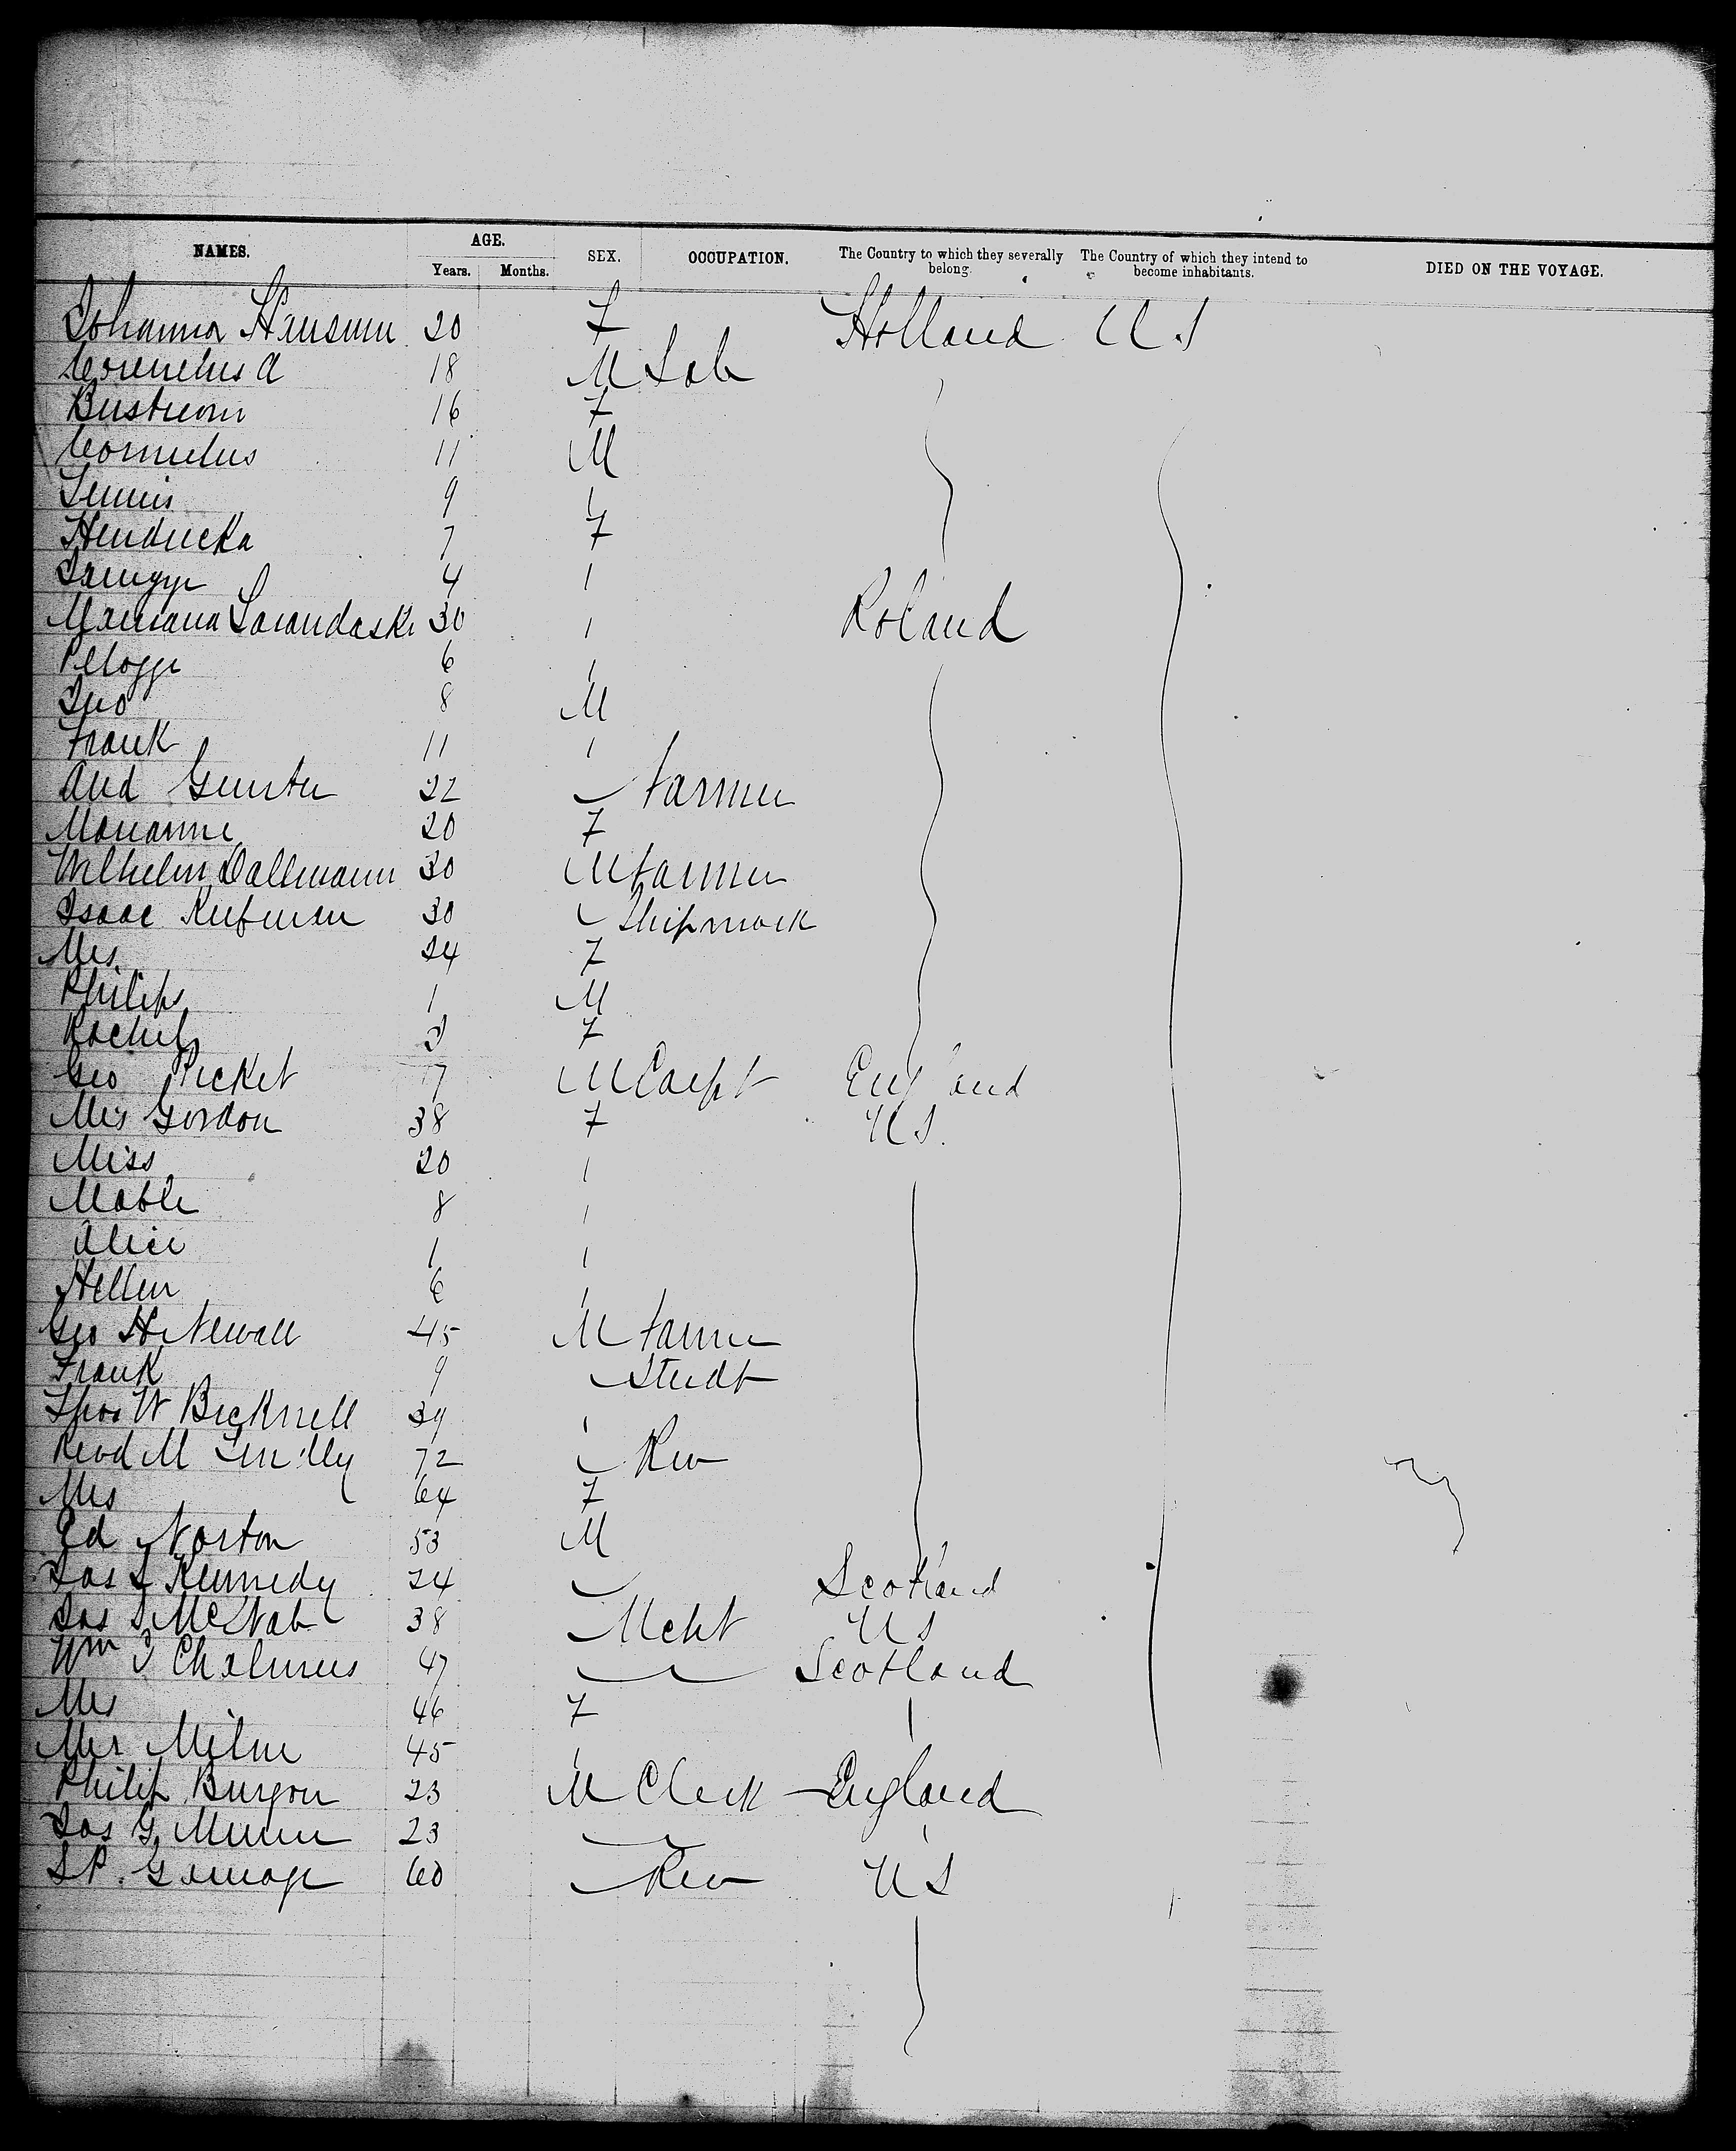 NAMES. AGE. SEX. OCCUPATION. The Country to which they severally belong. The Country of which they intend to become inhabitants. DIED ON THE VOYAGE.
Years. Months.
Johanna 20 F Holland U S
Cornelus A 18 M Lab
16 F
Cornelus 11 M
9 1
Hendricka 7 F
4 1
30 1 Poland
6 1
Jno 8 M
Frank 11 1
And Gunter 22 Farmer
Marianne 20 F
Wilhelm Dallmann 30 M Farmer
Isaac Kufman 30
Mrs 24 F
Philip 1 M
Rachel 3 F
Geo Picket 17 M Carpt England
Mrs Gordon 38 F U S.
Miss 20 1
Mable 8 1
Alice 1 1
Hellen 6 1
Geo H Newall 45 M Farmer
Frank 9 Studt
Thos W Bicknell 39 1
Revd M 72 Rev
Mrs 64 F
Ed Norton 53 M
Jas S Kennedy 24 Scotland
Jas S McNab 38 Mcht U S
Wm J Chalmers 47 Scotland
Mrs 46 F
Mrs Milne 45 1
Philip Burgon 23 M Clerk England
Jas G 23
S P. Gamage 60 Rev U S